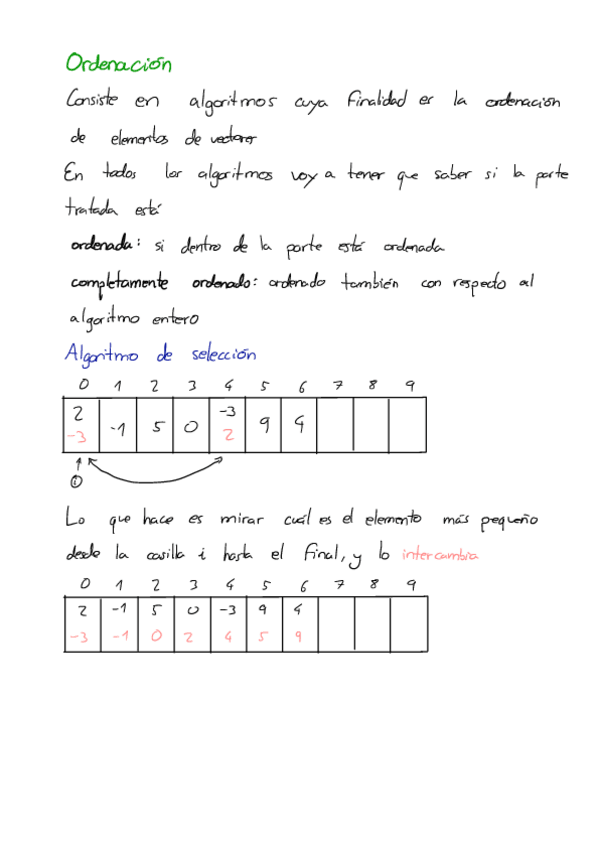 Ordenación
Consiste en algoritmos cuya finalidad es la ordenación
de elementos de vectores
En todos los algoritmos voy a tener que saber si la parte
tratada está
ordenada: si dentro de la parte está ordenada
completamente ordenado: ordenado también con respecto al
algoritmo entero
Algoritmo de selección
0 1 2 3 4 5 6 7 8 9
2 -1 5 0 -3 9 4
-3 2
i
Lo que hace es mirar cuál es el elemento más pequeño
desde la casilla i hasta el final, y lo intercambia
0 1 2 3 4 5 6 7 8 9
2 -1 5 0 -3 9 4
-3 -1 0 2 4 5 9